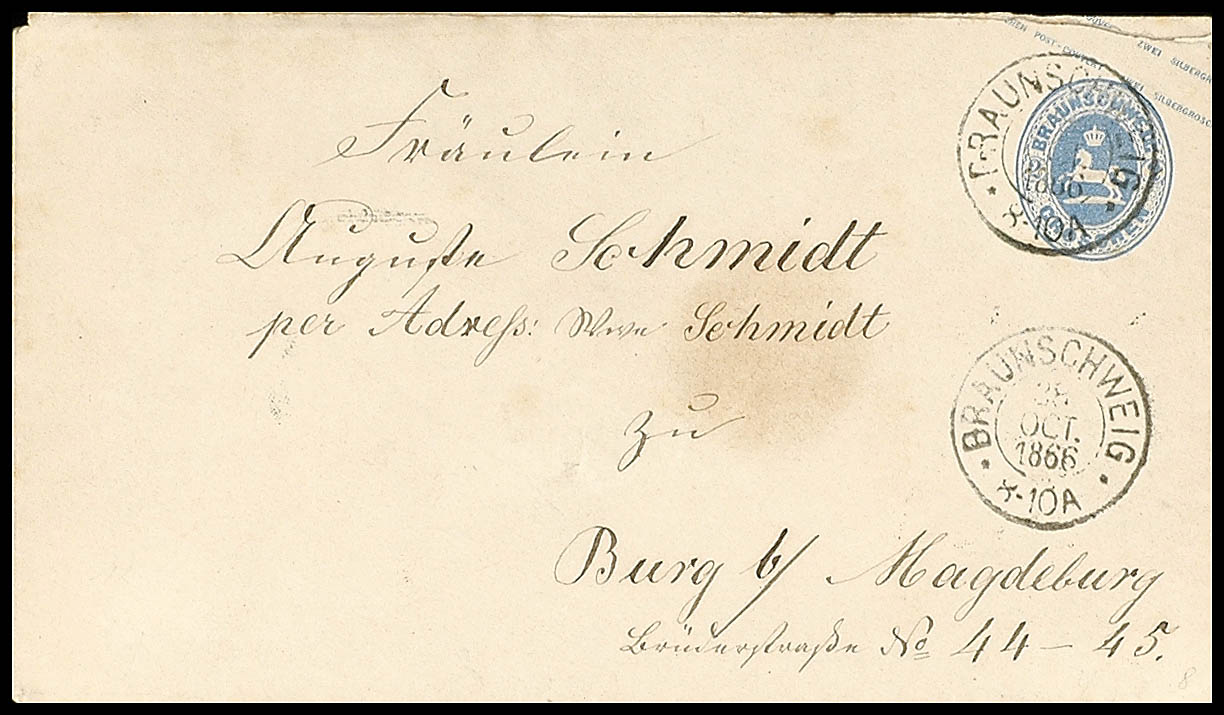 POST-COUVERT ZWEI SILBERGROSC
ZWEI SILBERGRO
BRAUNSCHWEIG
1866
X-10A
BRAUNSCHWEIG
GROSCHEN
Fräulein
Auguste Schmidt
per Adress: Wwe Schmidt
zu
Burg b/ Magdeburg
Brüderstraße No 44-45.
BRAUNSCHWEIG
28
OCT.
1866
X-10A
8
8